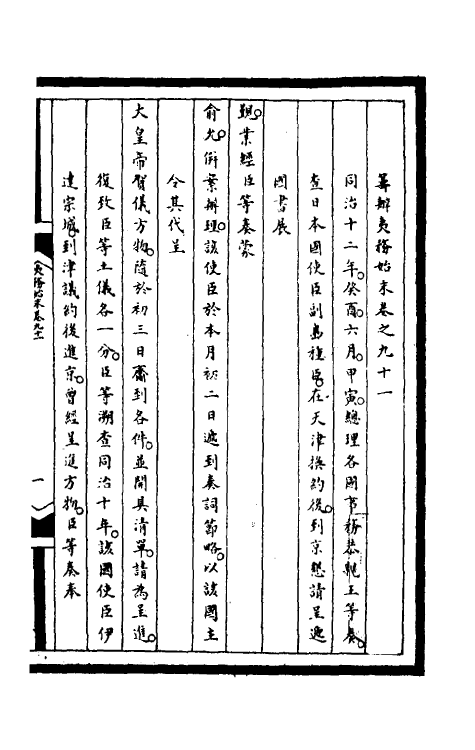 籌辦夷務始末卷之九十一
同治十二年。癸酉。六月。甲寅。總理各國事務恭親王等奏。
查日本國使臣副島種臣。在天津換約後。到京懇請呈遞
國書展
覲。業經臣等奏蒙
俞允。倂案辦理。該使臣於本月初二日遞到奏詞節略。以該國主
令其代呈
大皇帝賀儀方物。隨於初三日齎到各件。並開具清單。請為呈進。
復致臣等土儀各一分。臣等溯查同治十年。該國使臣伊
達宗城。到津議約後進京。曾經呈進方物。臣等奏奉
夷務始末卷九十一
一